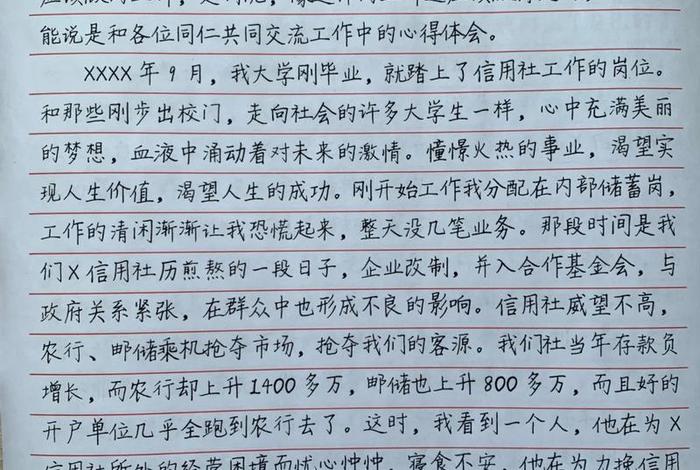 能说是和各位同仁共同交流工作中的心得体会。
XXXX年9月，我大学刚毕业，就踏上了信用社工作的岗位。
和那些刚步出校门，走向社会的许多大学生一样，心中充满美丽
的梦想，血液中涌动着对未来的激情。憧憬火热的事业，渴望实
现人生价值，渴望人生的成功。刚开始工作我分配在内部储蓄岗，
工作的清闲渐渐让我恐慌起来，整天没几笔业务。那段时间是我
们X信用社历煎熬的一段日子，企业改制，并入合作基金会，与
政府关系紧张，在群众中也形成不良的影响。信用社威望不高，
农行、邮储乘机抢夺市场，抢夺我们的客源。我们社当年存款负
增长，而农行却上升1400多万，邮储也上升800多万，而且好的
开户单位几乎全跑到农行去了。这时，我看到一个人，他在为X
信用社所处的经营困境而忧心忡忡，寝食不安，他在为力挽信用